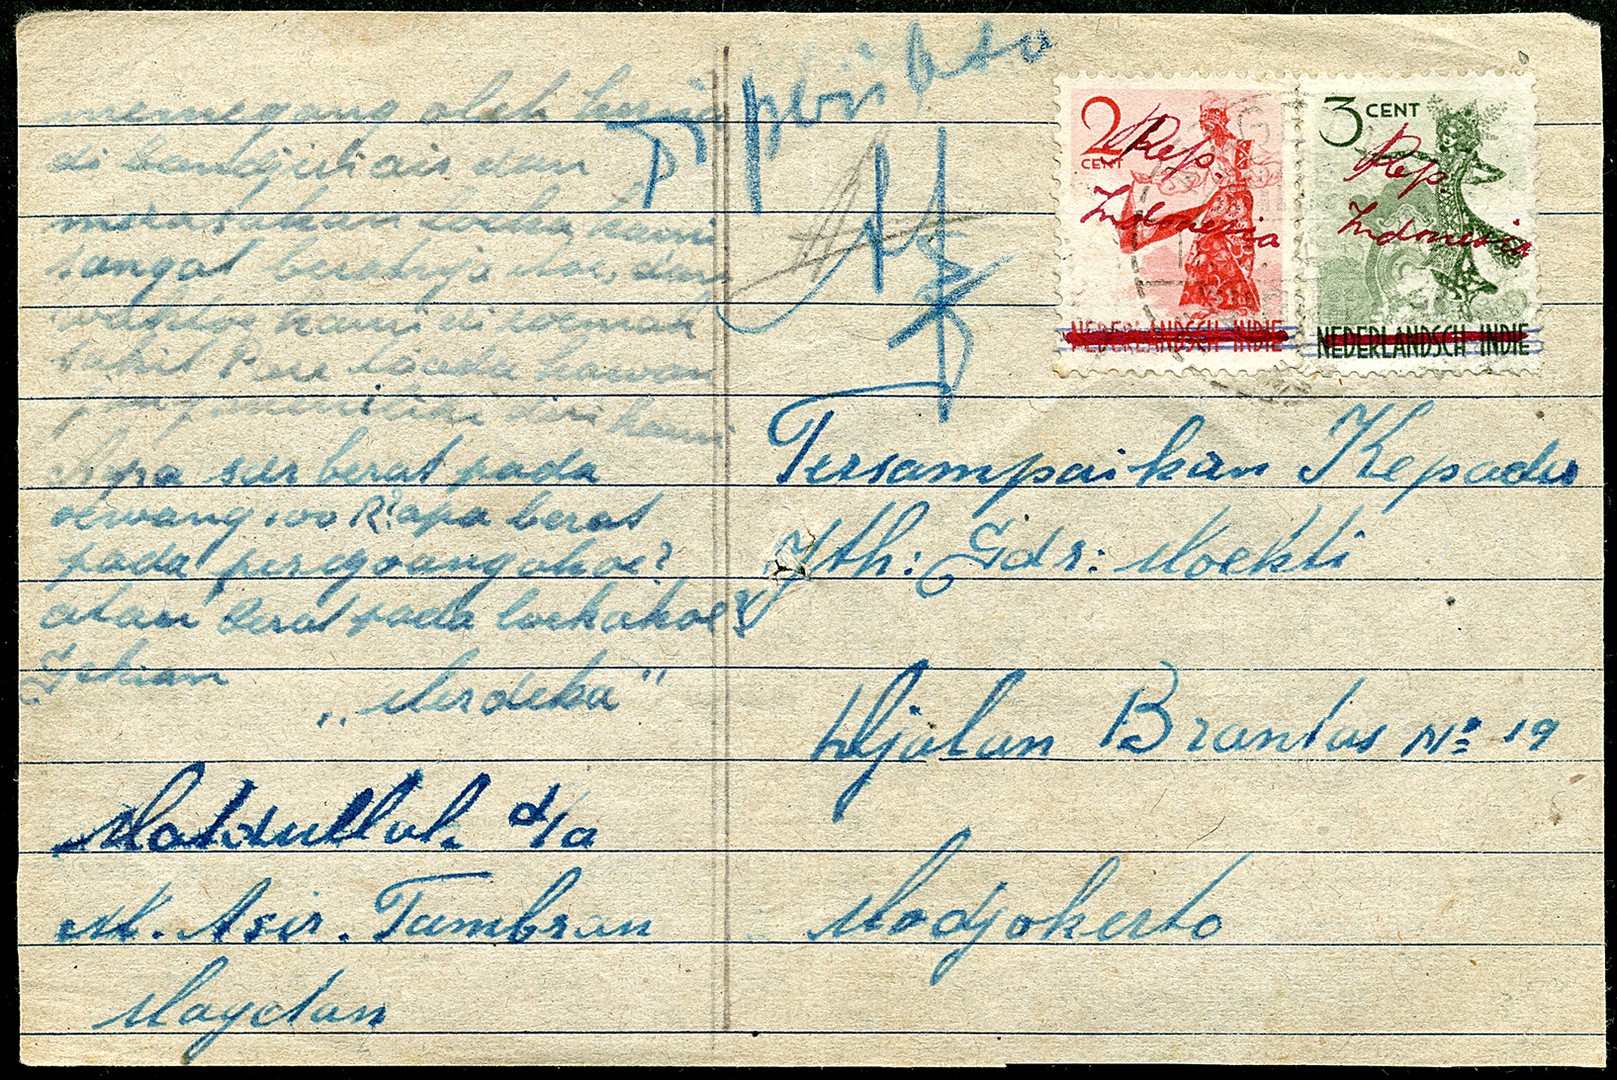 memegang oleh karna
di bandjiti air dan
merasakan loeka kami
sangat beratnja
waktoe kami di roemah
sakit Pare tiada kawan
jang diri kami
Apa sdr berat pada
oewang 100 R? apa berat
pada perdjoangankoe?
atau berat pada loekakoe?
Sekian
„Merdeka"
d/a
M. Asir. Tambran
Magetan
Diperiksa
2 CENT
Rep.
Indonesia
NEDERLANDSCH INDIE
3 CENT
Rep
Indonesia
NEDERLANDSCH INDIE
Tersampaikan Kepada
Jth: Sdr: Moekti
Djalan Brantas No 19
Modjokerto